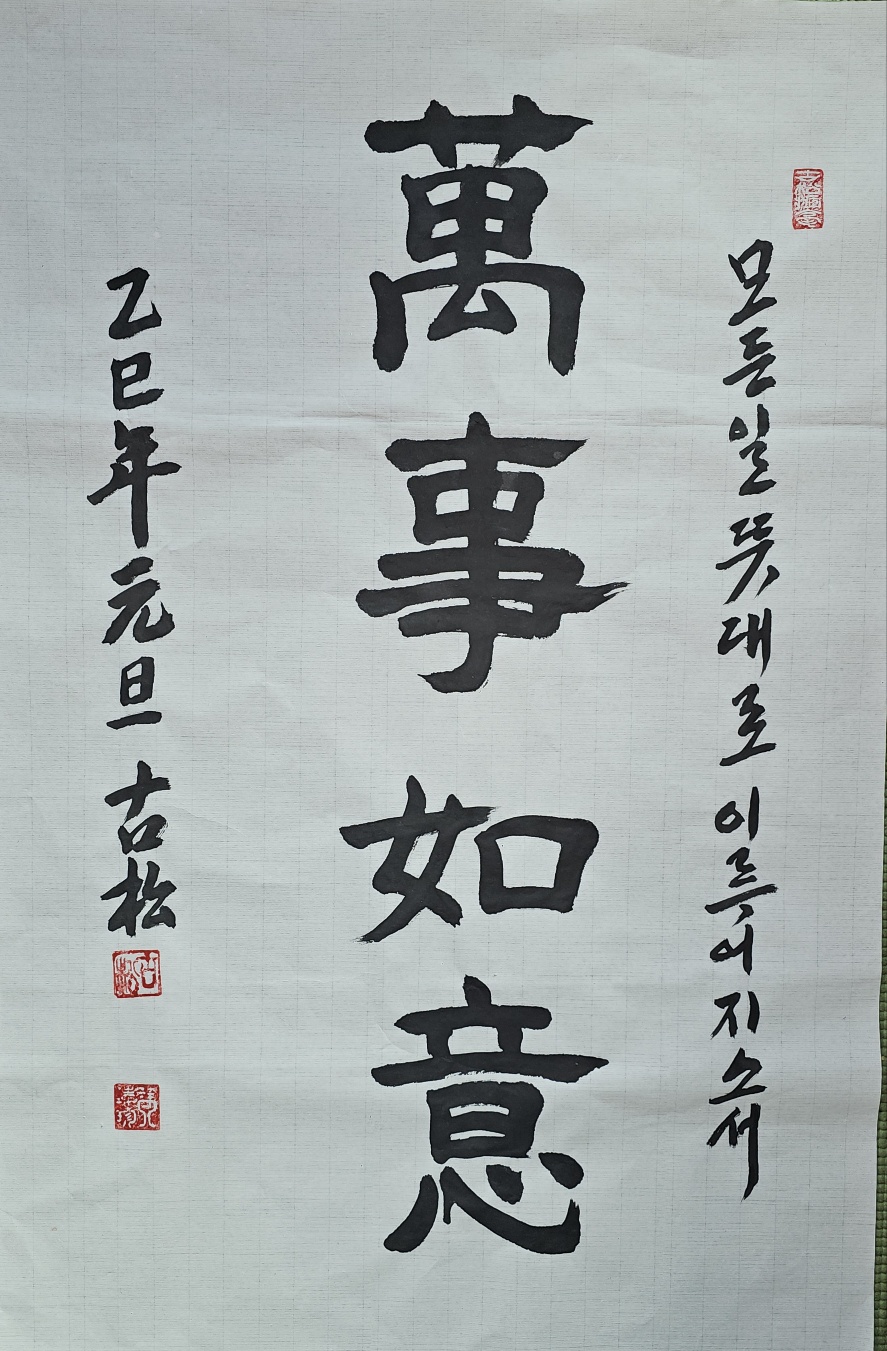 모든일 뜻대로 이루어지소서
萬事如意
乙巳年元旦 古松